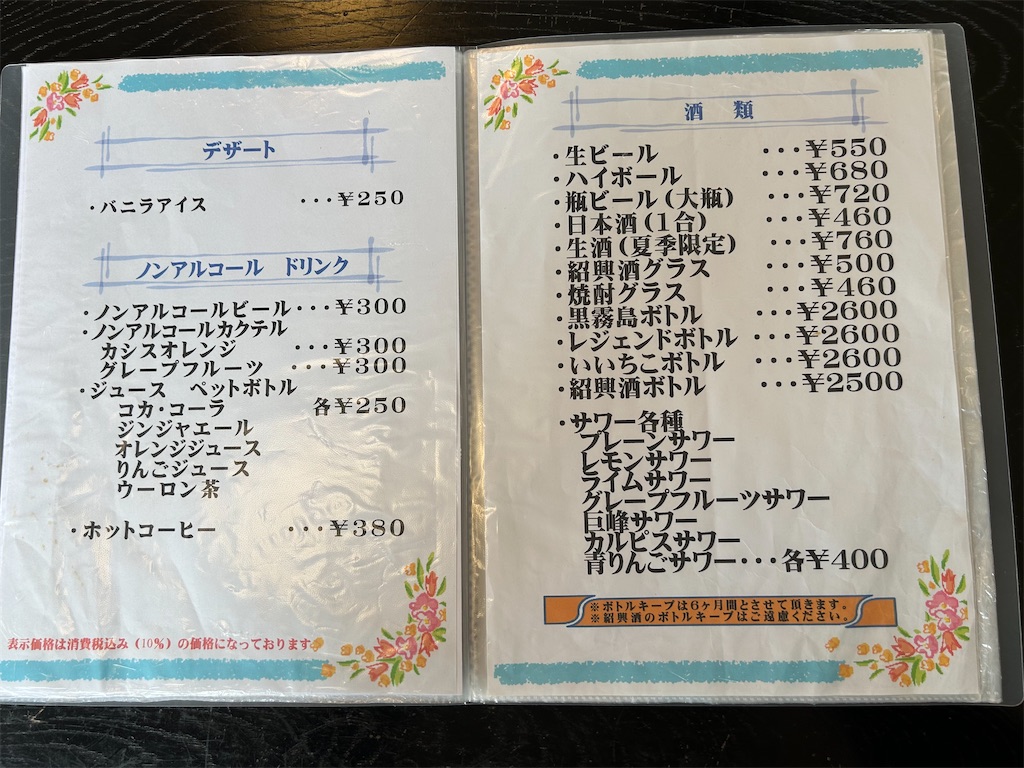 デザート
・バニラアイス ・・・¥250
ノンアルコール ドリンク
・ノンアルコールビール・・・¥300
・ノンアルコールカクテル
カシスオレンジ ・・・¥300
グレープフルーツ ・・・¥300
・ジュース ペットボトル
コカ・コーラ 各¥250
ジンジャエール
オレンジジュース
りんごジュース
ウーロン茶
・ホットコーヒー ・・・¥380
表示価格は消費税込み(10%)の価格になっております。
酒 類
・生ビール ・・・¥550
・ハイボール ・・・¥680
・瓶ビール(大瓶) ・・・¥720
・日本酒(1合) ・・・¥460
・生酒(夏季限定) ・・・¥760
・紹興酒グラス ・・・¥500
・焼酎グラス ・・・¥460
・黒霧島ボトル ・・・¥2600
・レジェンドボトル ・・・¥2600
・いいちこボトル ・・・¥2600
・紹興酒ボトル ・・・¥2500
・サワー各種
プレーンサワー
レモンサワー
ライムサワー
グレープフルーツサワー
巨峰サワー
カルピスサワー
青りんごサワー・・・各¥400
※ボトルキープは6ヶ月間とさせて頂きます。
※紹興酒のボトルキープはご遠慮ください。